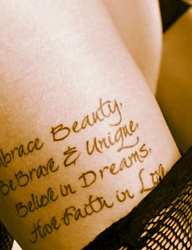 mbrace Beauty.
Be Brave & Unique.
Believe in Dreams.
Have Faith in Love